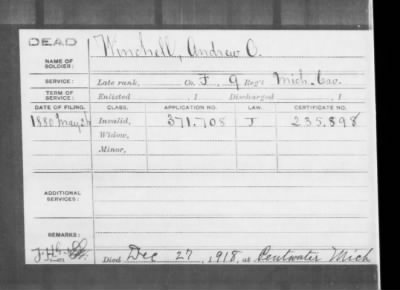 DEAD
Winchell, Andrew O.
NAME OF SOLDIER:
SERVICE: Late rank, Co. F, 9 Reg't Mich. Cav.
TERM OF SERVICE: Enlisted , 1 Discharged , 1
DATE OF FILING. CLASS. APPLICATION NO. LAW. CERTIFICATE NO.
1880 May 26 Invalid, 371.708 J 235.898
Widow,
Minor,
ADDITIONAL SERVICES:
REMARKS:
Died Dec 27, 1918, at Pentwater Mich